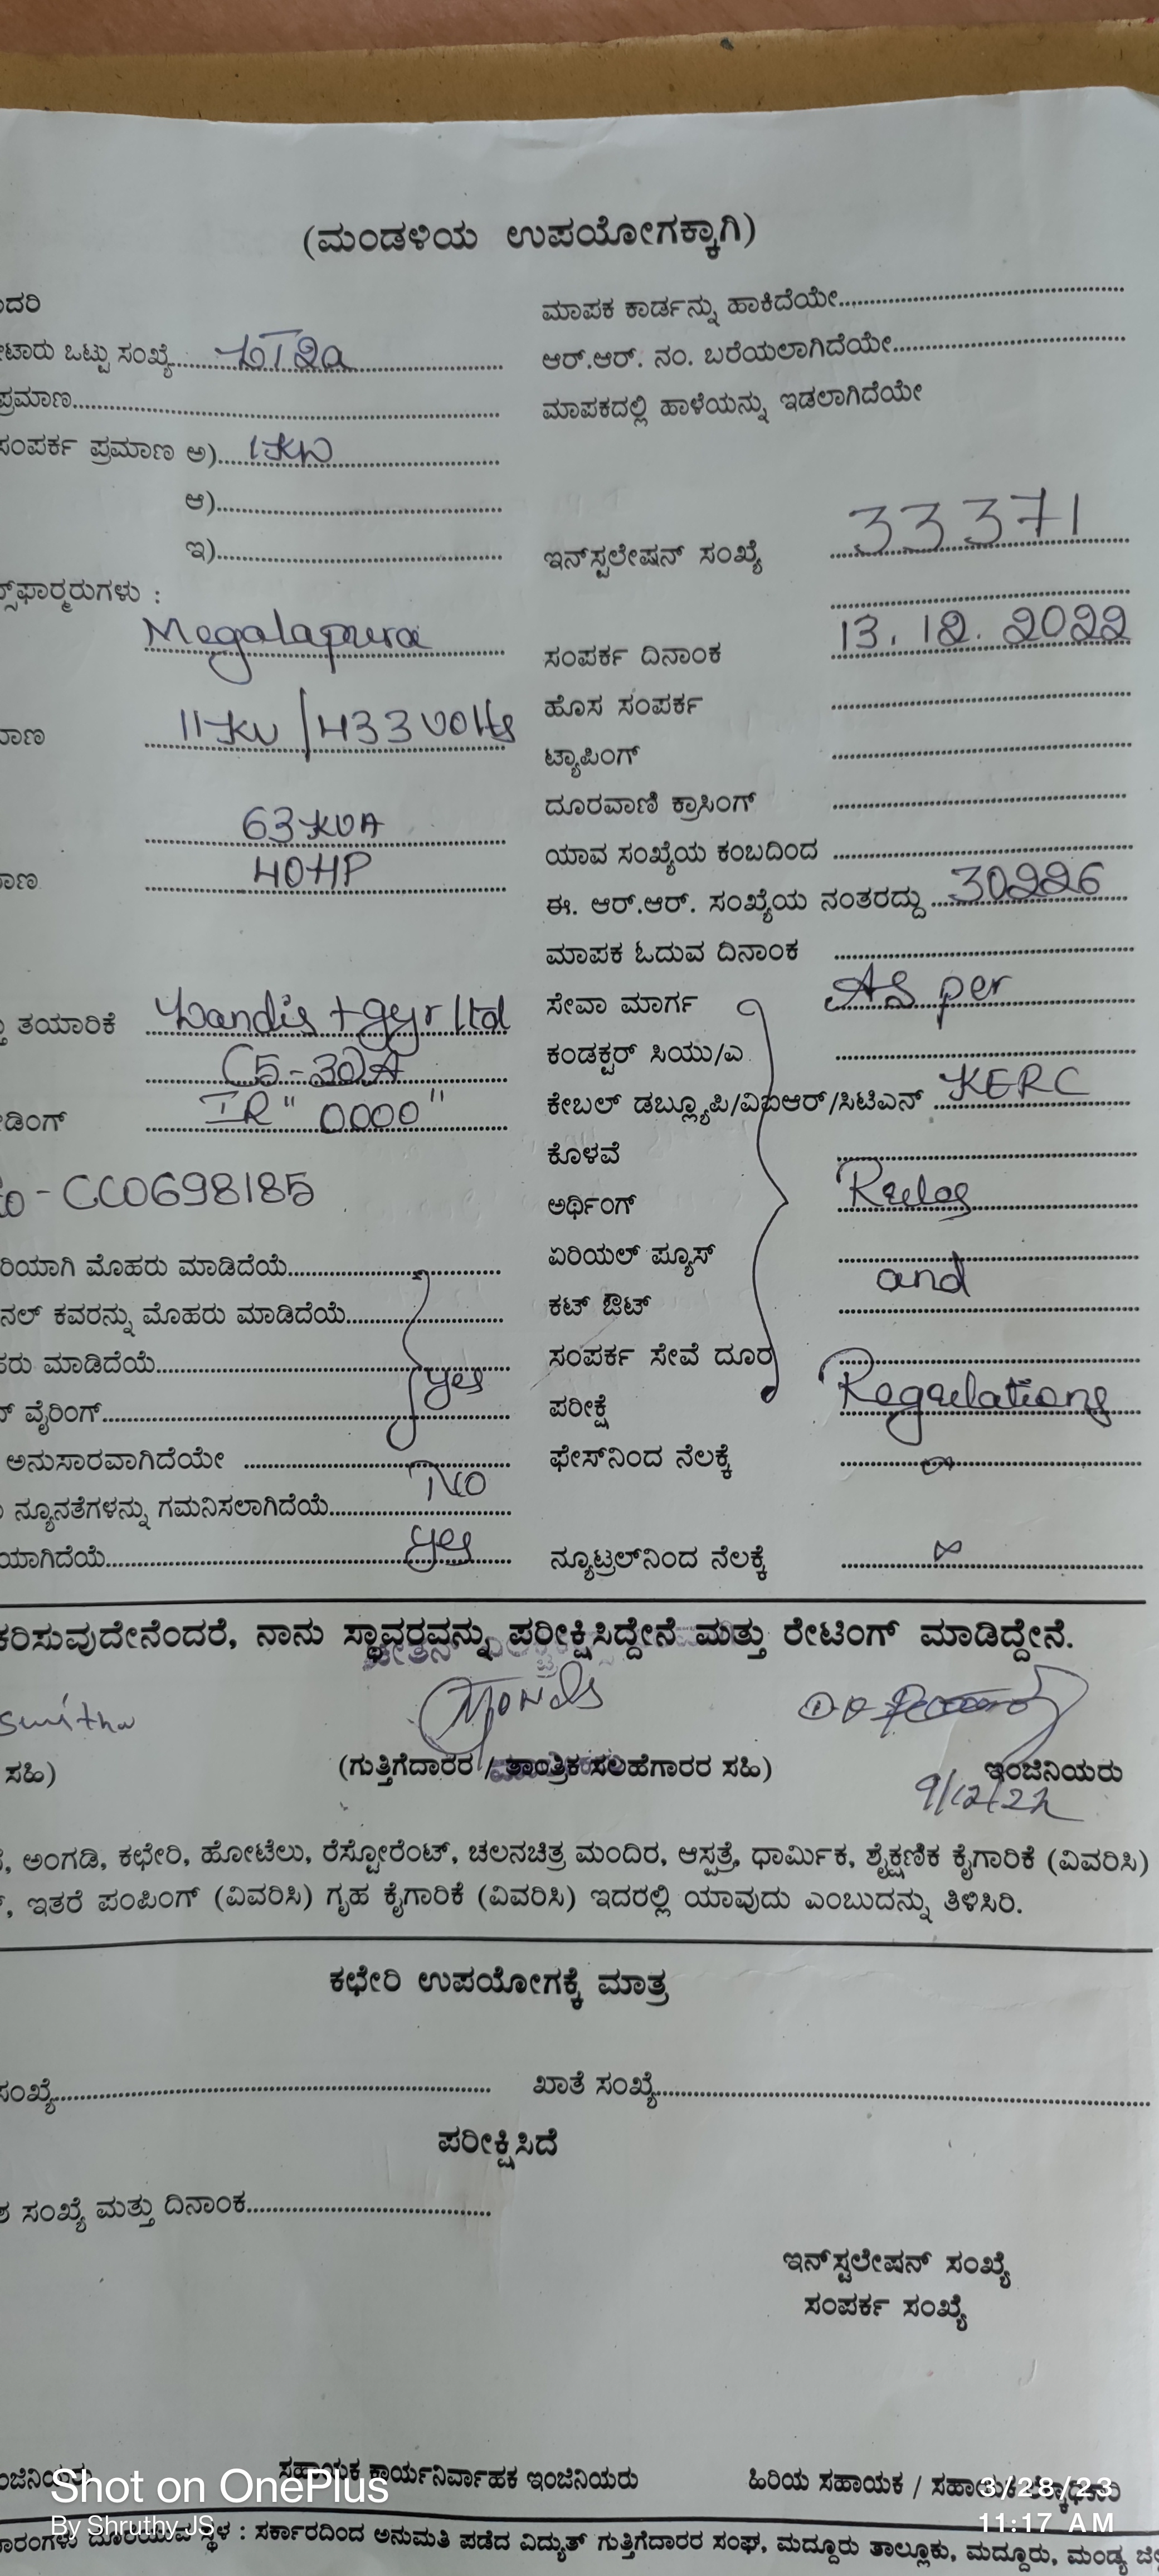 (ಮಂಡಳಿಯ ಉಪಯೋಗಕ್ಕಾಗಿ)
ದರಿ
ಮಾಪಕ ಕಾರ್ಡನ್ನು ಹಾಕಿದೆಯೇ
ಟಾರು ಒಟ್ಟು ಸಂಖ್ಯೆ LT2a
ಆರ್.ಆರ್. ನಂ. ಬರೆಯಲಾಗಿದೆಯೇ
ಪ್ರಮಾಣ
ಮಾಪಕದಲ್ಲಿ ಹಾಳೆಯನ್ನು ಇಡಲಾಗಿದೆಯೇ
ಸಂಪರ್ಕ ಪ್ರಮಾಣ ಅ) 1KW
ಆ)
ಇ)
ಇನ್‌ಸ್ಟಲೇಷನ್ ಸಂಖ್ಯೆ 33371
ಸ್‌ಫಾರ್ಮರುಗಳು :
Megalapura
ಸಂಪರ್ಕ ದಿನಾಂಕ 13.12.2022
ಹೊಸ ಸಂಪರ್ಕ
ಮಾಣ 11KV/433 Volts
ಟ್ಯಾಪಿಂಗ್
ದೂರವಾಣಿ ಕ್ರಾಸಿಂಗ್
63KVA
ಯಾವ ಸಂಖ್ಯೆಯ ಕಂಬದಿಂದ
ಮಾಣ 40HP
ಈ. ಆರ್.ಆರ್. ಸಂಖ್ಯೆಯ ನಂತರದ್ದು 30226
ಮಾಪಕ ಓದುವ ದಿನಾಂಕ
ತಯಾರಿಕೆ Landis + gyr ltd
ಸೇವಾ ಮಾರ್ಗ As per
(5-30)A
ಕಂಡಕ್ಟರ್ ಸಿಯು/ಎ
ಡಿಂಗ್ IR "0000"
ಕೇಬಲ್ ಡಬ್ಲ್ಯೂಪಿ/ವಿಐಆರ್/ಸಿಟಿಎನ್ KERC
ಕೊಳವೆ
- CC0698185
ಅರ್ಥಿಂಗ್ Rules
ರಿಯಾಗಿ ಮೊಹರು ಮಾಡಿದೆಯೆ
ಏರಿಯಲ್ ಪ್ಯೂಸ್
ನಲ್ ಕವರನ್ನು ಮೊಹರು ಮಾಡಿದೆಯೆ
ಕಟ್ ಔಟ್ and
ಹರು ಮಾಡಿದೆಯೆ yes
ಸಂಪರ್ಕ ಸೇವೆ ದೂರ
ವೈರಿಂಗ್
ಪರೀಕ್ಷೆ Regulations
ಅನುಸಾರವಾಗಿದೆಯೇ
ಫೇಸ್‌ನಿಂದ ನೆಲಕ್ಕೆ ∞
ನ್ಯೂನತೆಗಳನ್ನು ಗಮನಿಸಲಾಗಿದೆಯೆ No
ಯಾಗಿದೆಯೆ yes
ನ್ಯೂಟ್ರಲ್‌ನಿಂದ ನೆಲಕ್ಕೆ ∞
ಕರಿಸುವುದೇನೆಂದರೆ, ನಾನು ಸ್ಥಾವರವನ್ನು ಪರೀಕ್ಷಿಸಿದ್ದೇನೆ ಮತ್ತು ರೇಟಿಂಗ್ ಮಾಡಿದ್ದೇನೆ.
ಸಹಿ)
(ಗುತ್ತಿಗೆದಾರರ / ತಾಂತ್ರಿಕ ಸಲಹೆಗಾರರ ಸಹಿ)
ಇಂಜಿನಿಯರು
9/12/22
, ಅಂಗಡಿ, ಕಛೇರಿ, ಹೋಟೆಲು, ರೆಸ್ಟೋರೆಂಟ್, ಚಲನಚಿತ್ರ ಮಂದಿರ, ಆಸ್ಪತ್ರೆ, ಧಾರ್ಮಿಕ, ಶೈಕ್ಷಣಿಕ ಕೈಗಾರಿಕೆ (ವಿವರಿಸಿ)
, ಇತರೆ ಪಂಪಿಂಗ್ (ವಿವರಿಸಿ) ಗೃಹ ಕೈಗಾರಿಕೆ (ವಿವರಿಸಿ) ಇದರಲ್ಲಿ ಯಾವುದು ಎಂಬುದನ್ನು ತಿಳಿಸಿರಿ.
ಕಛೇರಿ ಉಪಯೋಗಕ್ಕೆ ಮಾತ್ರ
ಸಂಖ್ಯೆ
ಖಾತೆ ಸಂಖ್ಯೆ
ಪರೀಕ್ಷಿಸಿದೆ
ಸಂಖ್ಯೆ ಮತ್ತು ದಿನಾಂಕ
ಇನ್‌ಸ್ಟಲೇಷನ್ ಸಂಖ್ಯೆ
ಸಂಪರ್ಕ ಸಂಖ್ಯೆ
ಸಹಾಯಕ ಕಾರ್ಯನಿರ್ವಾಹಕ ಇಂಜಿನಿಯರು
ಹಿರಿಯ ಸಹಾಯಕ / ಸಹಾಯಕ
Shot on OnePlus
By Shruthy JS
3/28/23
11:17 AM
ದೊರೆಯುವ ಸ್ಥಳ : ಸರ್ಕಾರದಿಂದ ಅನುಮತಿ ಪಡೆದ ವಿದ್ಯುತ್ ಗುತ್ತಿಗೆದಾರರ ಸಂಘ, ಮದ್ದೂರು ತಾಲ್ಲೂಕು, ಮದ್ದೂರು, ಮಂಡ್ಯ